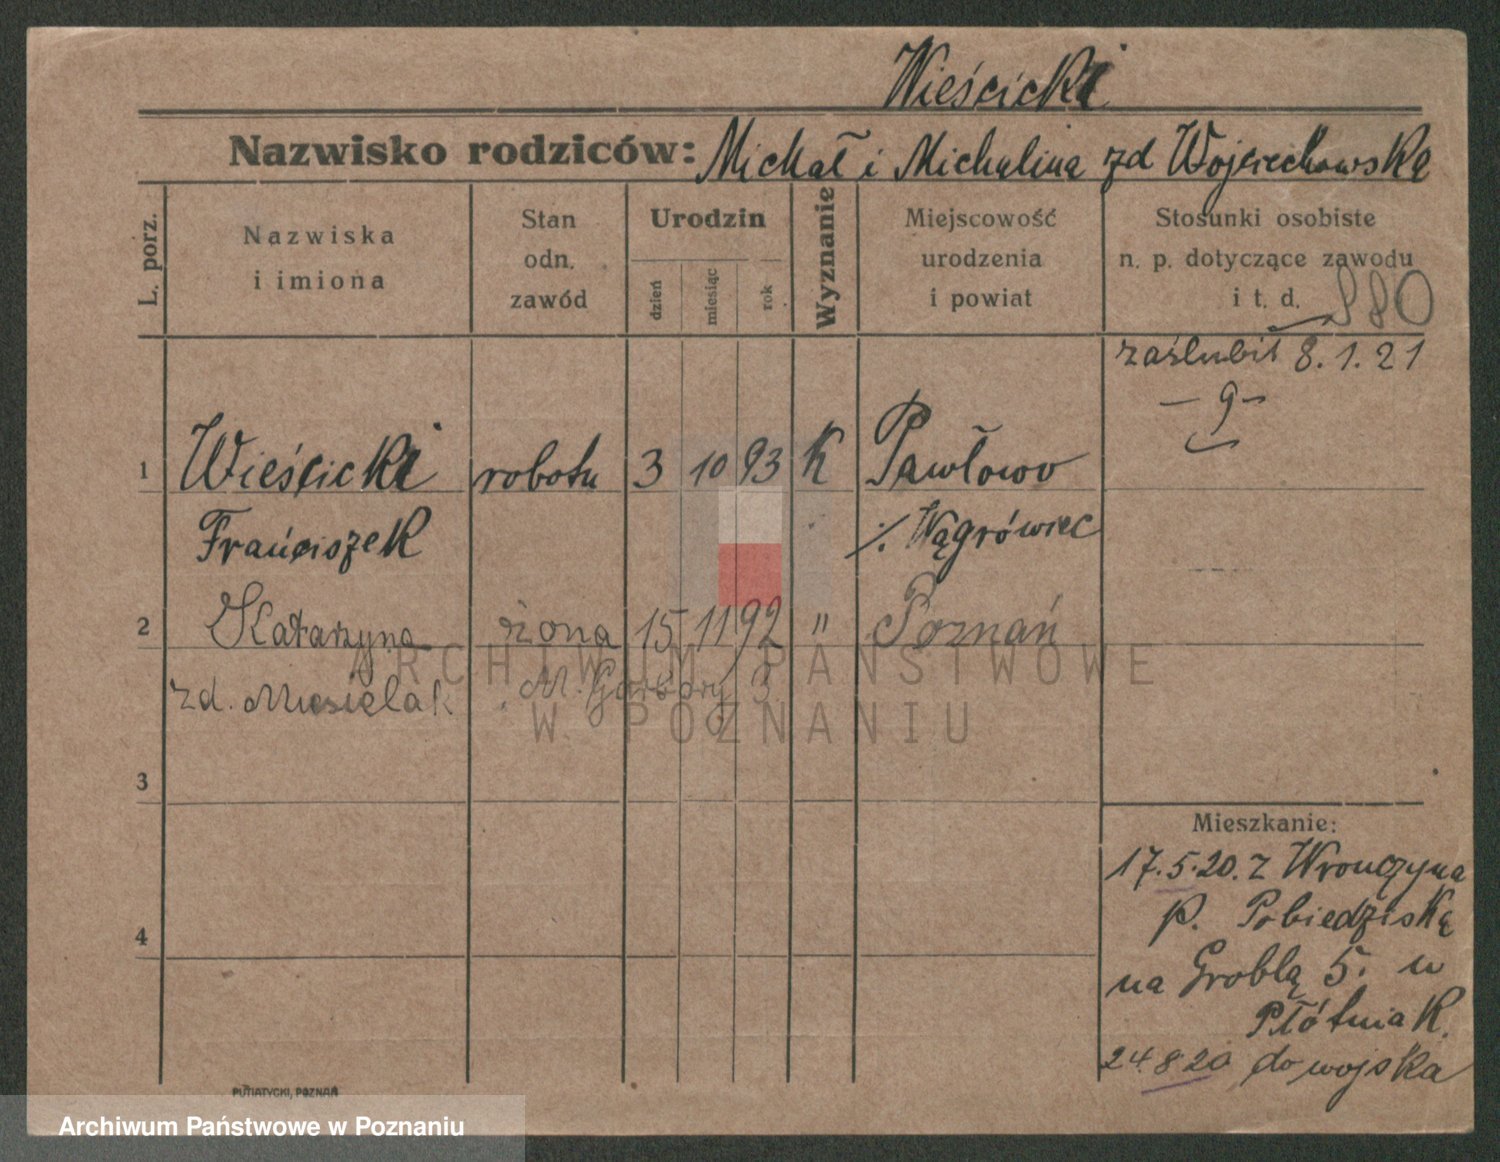 Wieścicki
Nazwisko rodziców: Michał i Michalina zd Wojciechowska
L. porz.
Nazwiska
i imiona
Stan
odn.
zawód
Urodzin
dzień
miesiąc
rok
Wyznanie
Miejscowość
urodzenia
i powiat
Stosunki osobiste
n. p. dotyczące zawodu
i t. d.
980
zaślubił 8.1.21
– 9 –
1 Wieścicki robotn 3 10 93 K Pawłowo
Franciszek ./. Wągrówiec
2 Katarzyna żona 15 11 92 " Poznań
zd. M. Garbary 3
3
4
Mieszkanie:
17.5.20. z Wronczyna
p. Pobiedziską
na Groblą 5. u
Płótniak.
24.8.20 do wojska
PUTIATYCKI, POZNAŃ
ARCHIWUM PAŃSTWOWE
W POZNANIU
Archiwum Państwowe w Poznaniu